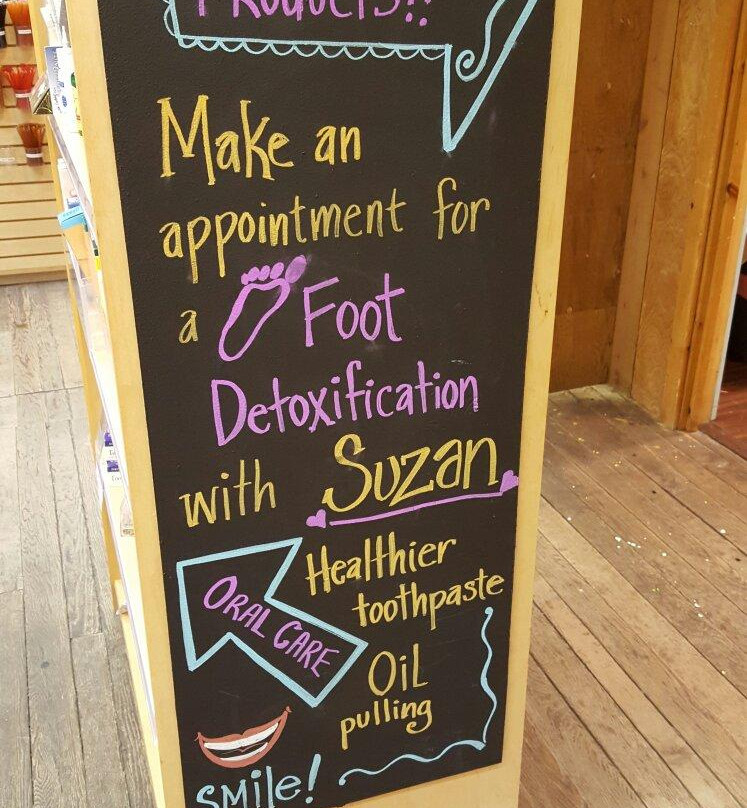 PRODUCTS!!
Make an
appointment for
a Foot
Detoxification
with Suzan
Healthier
toothpaste
ORAL CARE
OiL
pulling
SMile!